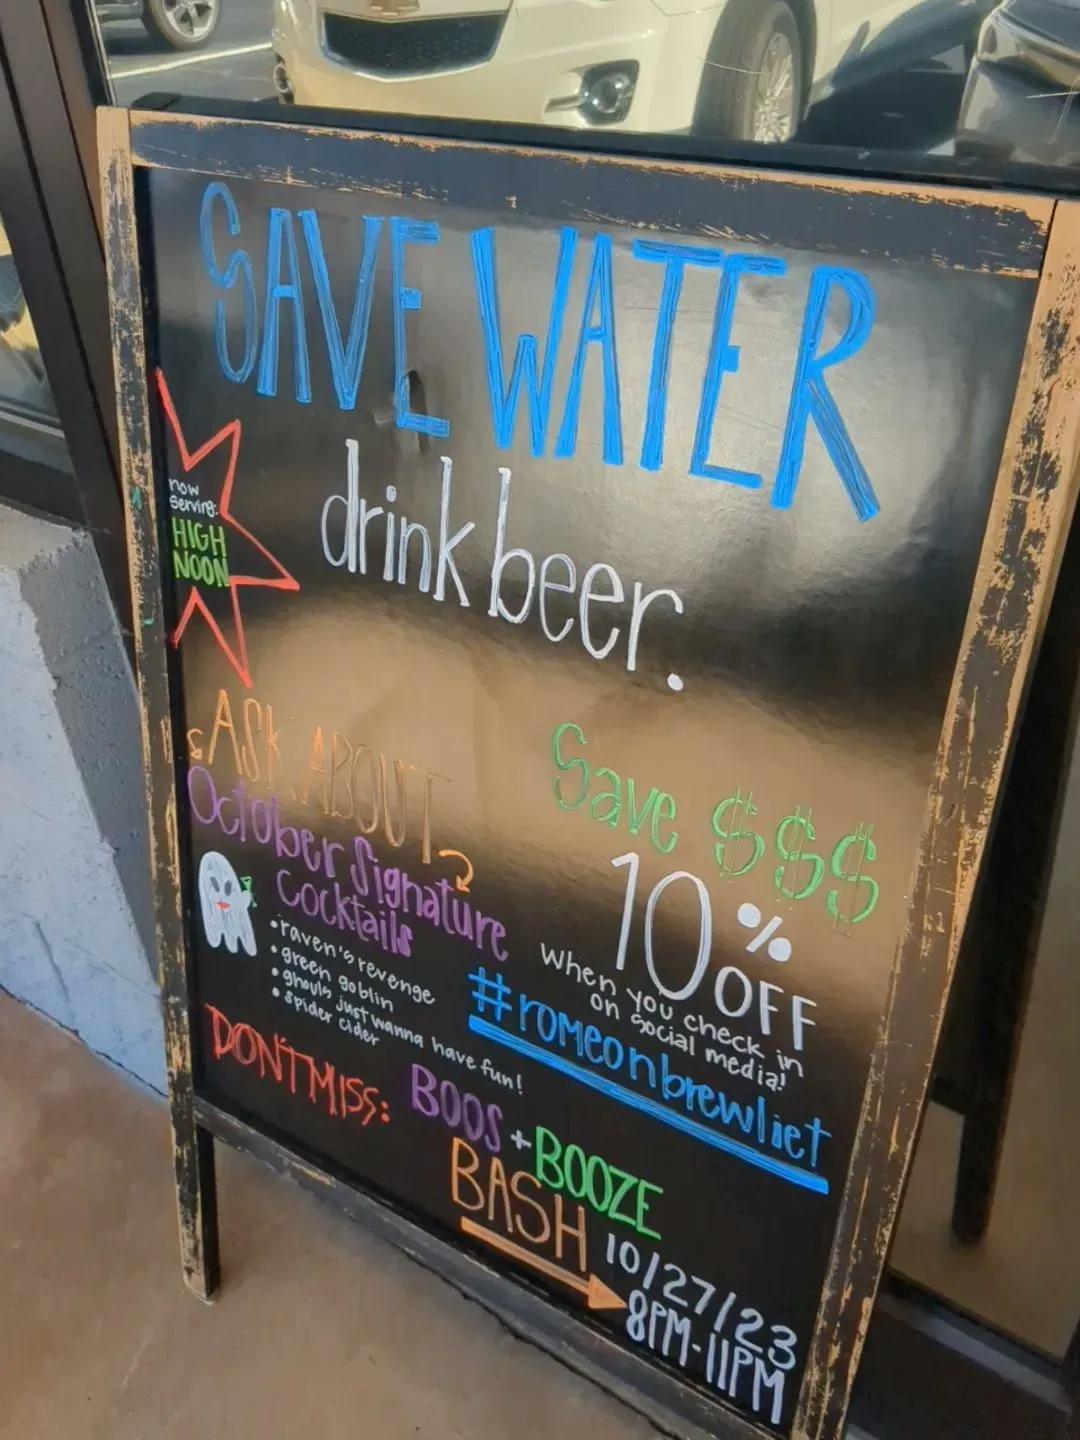 SAVE WATER
drink beer.
now
serving:
HIGH
NOON
ASK ABOUT
October Signature
Cocktails
• raven's revenge
• green goblin
• ghouls just wanna have fun!
• spider cider
Save $$$
10% OFF
when you check in
on social media!
#romeonbrewliet
DON'T MISS: BOOS + BOOZE
BASH
10/27/23
8PM-11PM